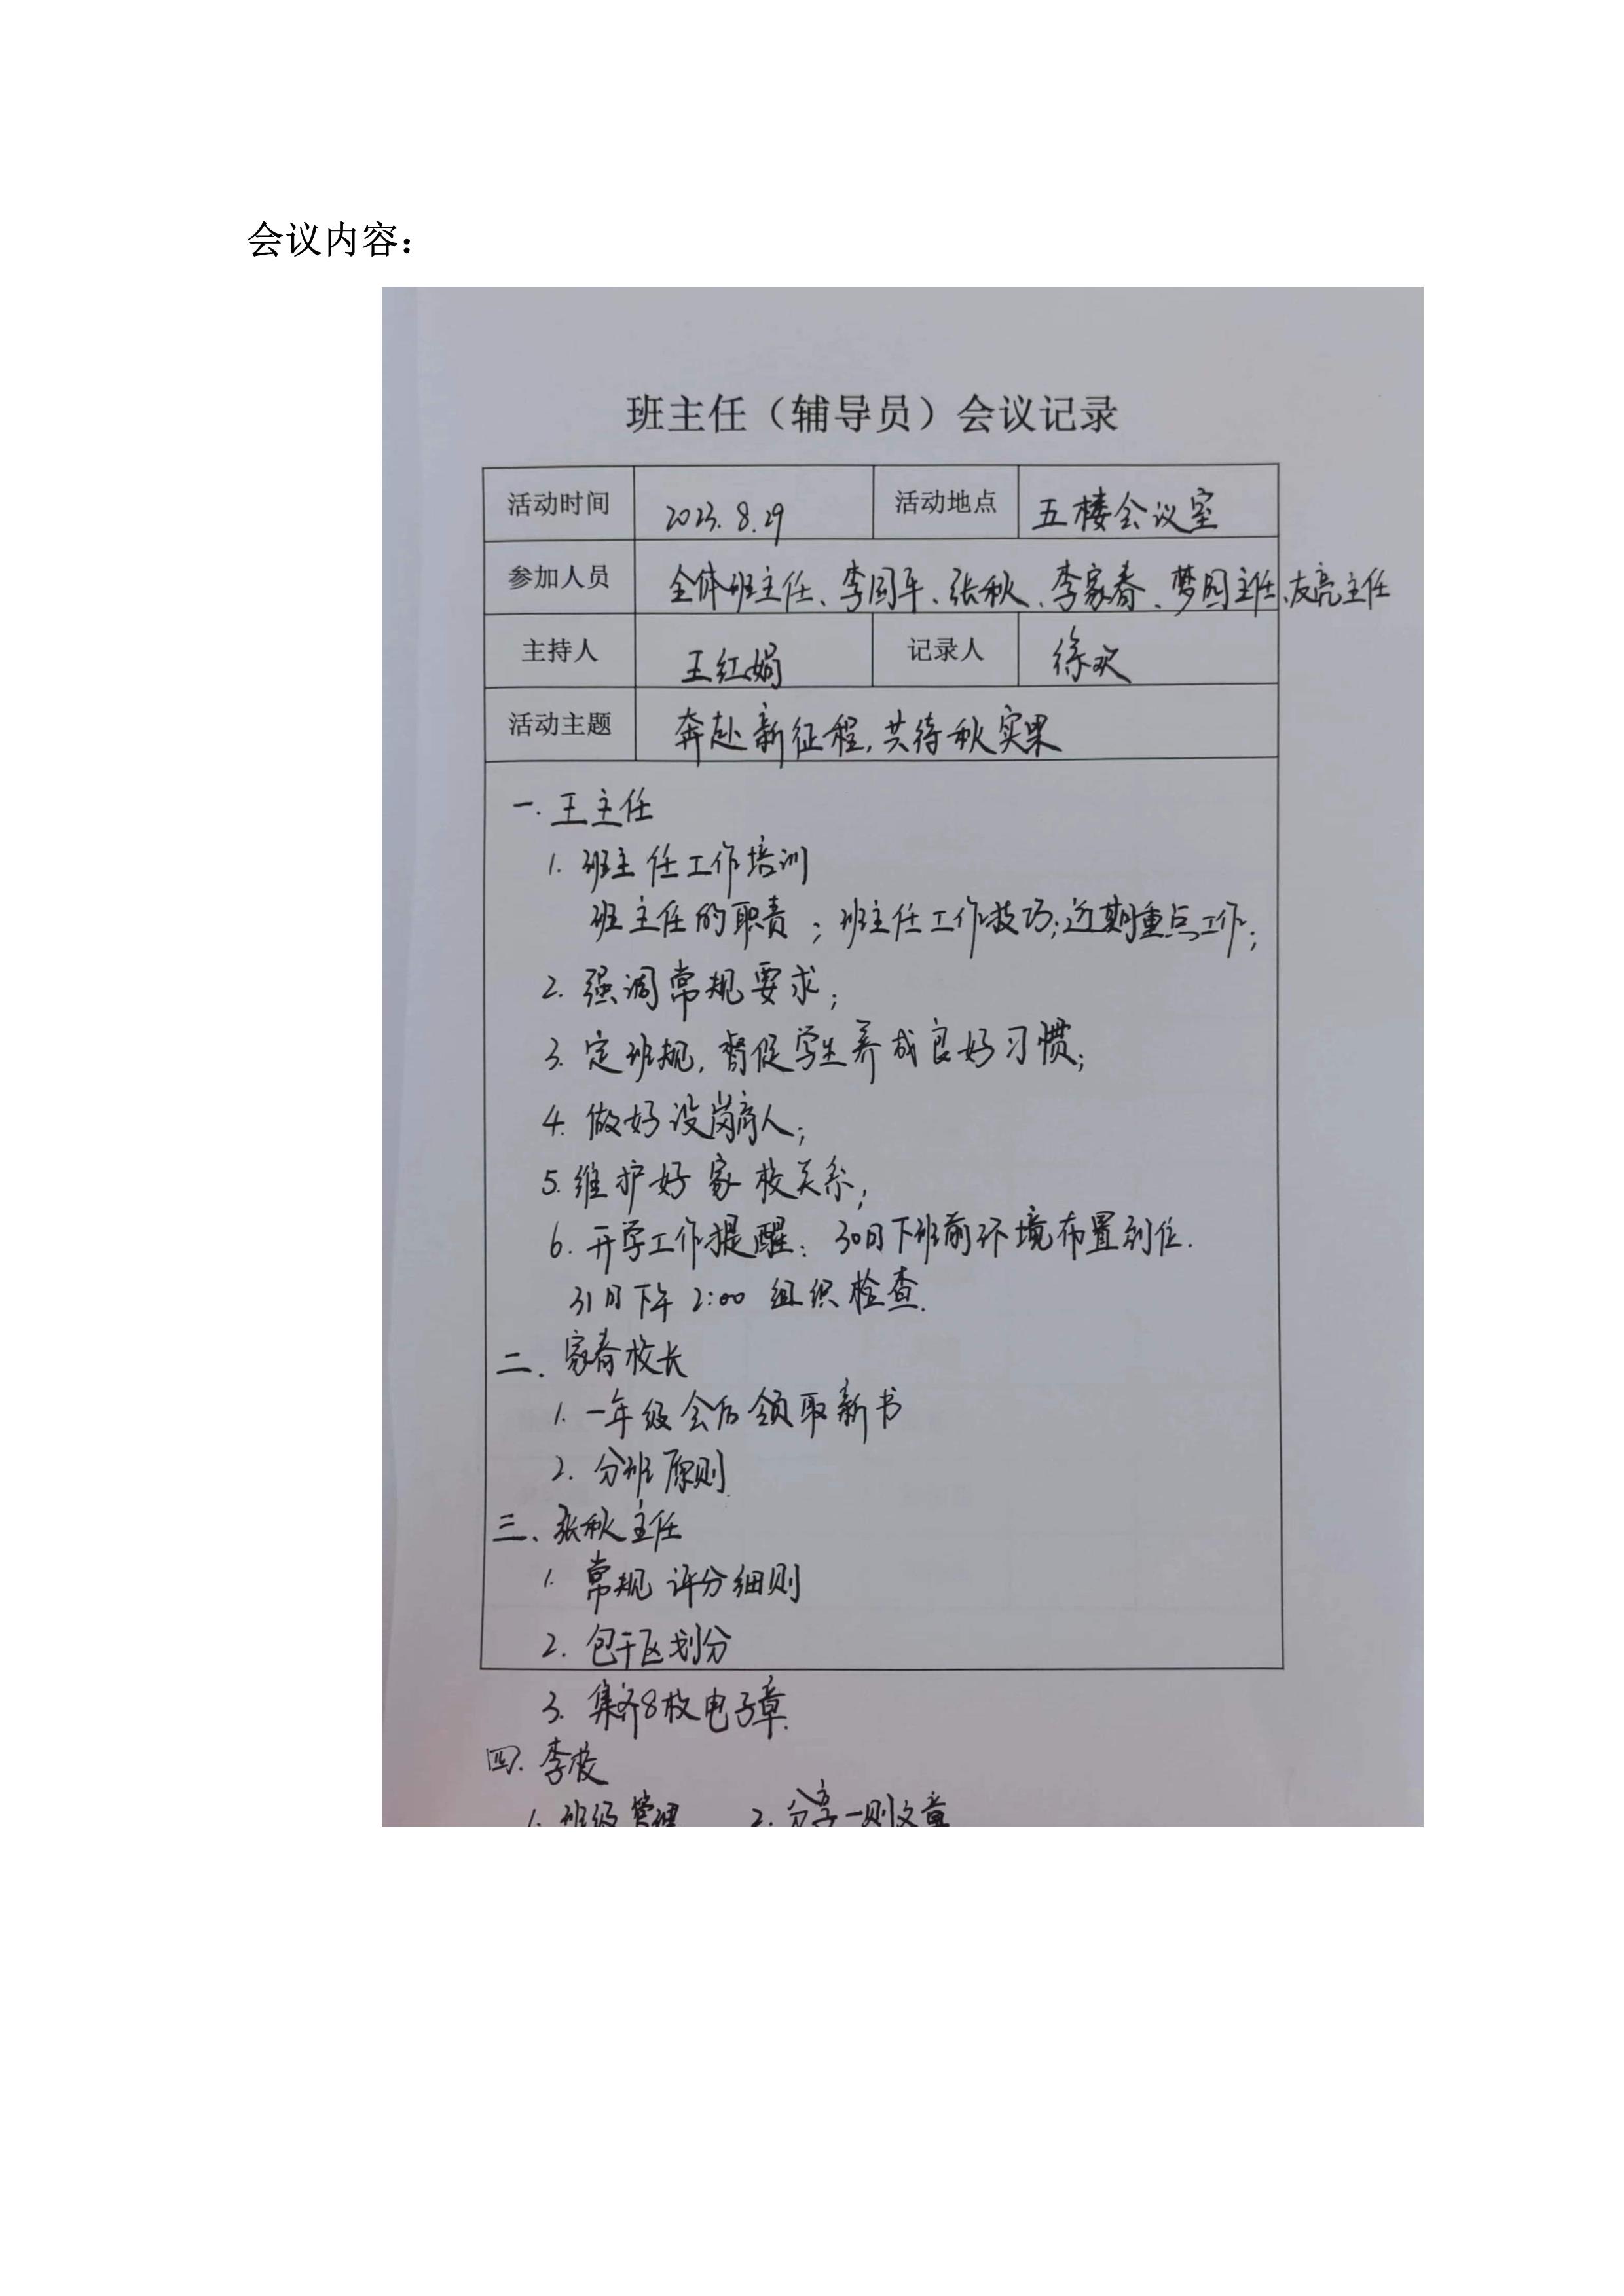 会议内容：
班主任（辅导员）会议记录
活动时间 2023.8.29 活动地点 五楼会议室
参加人员 全体班主任、李国平、张秋、李家春、梦园主任、友亮主任
主持人 王红娟 记录人 徐欢
活动主题 奔赴新征程，共待秋实果
一.王主任
1. 班主任工作培训
班主任的职责；班主任工作技巧；近期重点工作；
2. 强调常规要求；
3. 定班规，督促学生养成良好习惯；
4. 做好设岗育人；
5. 维护好家校关系；
6. 开学工作提醒：30日下班前环境布置到位.
31日下午2:00 组织检查.
二、家春校长
1. 一年级会后领取新书
2. 分班原则.
三、张秋主任
1. 常规评分细则
2. 包干区划分
3. 集齐8枚电子章.
四.李校
1. 班级管理 2. 分享一则文章